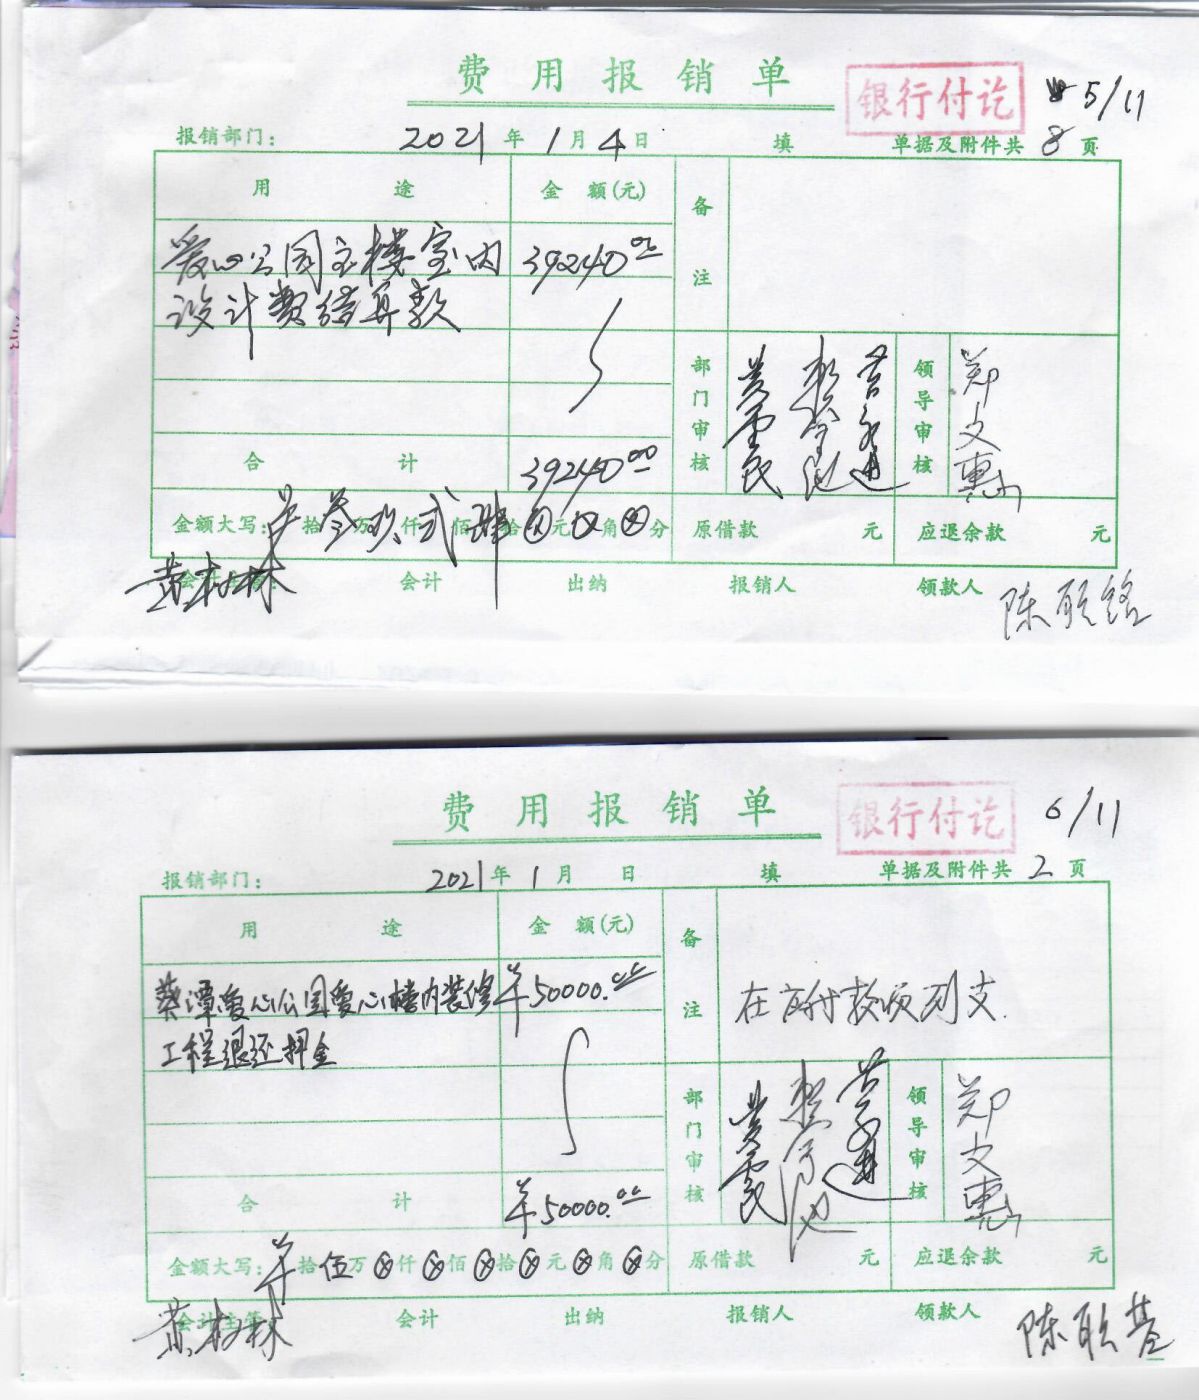 费用报销单
银行付讫
5/11
报销部门： 2021年1月4日 填 单据及附件共8页
用途 金额(元) 备注
爱心公园主楼室内 39240.00
设计费结算款
部门审核 领导审核 郑文惠
合计 39240.00
金额大写： 拾叁万玖仟贰佰肆拾⊗元⊗角⊗分 原借款 元 应退余款 元
会计 出纳 报销人 领款人 陈联铭
黄树林
费用报销单
银行付讫
6/11
报销部门： 2021年1月 日 填 单据及附件共2页
用途 金额(元) 备注
葵潭爱心公园爱心楼内装修 ¥50000.00
工程退还押金
在应付款项列支.
部门审核 领导审核 郑文惠
合计 ¥50000.00
金额大写： ¥拾伍万⊗仟⊗佰⊗拾⊗元⊗角⊗分 原借款 元 应退余款 元
会计主管 会计 出纳 报销人 领款人 陈联基
黄树林